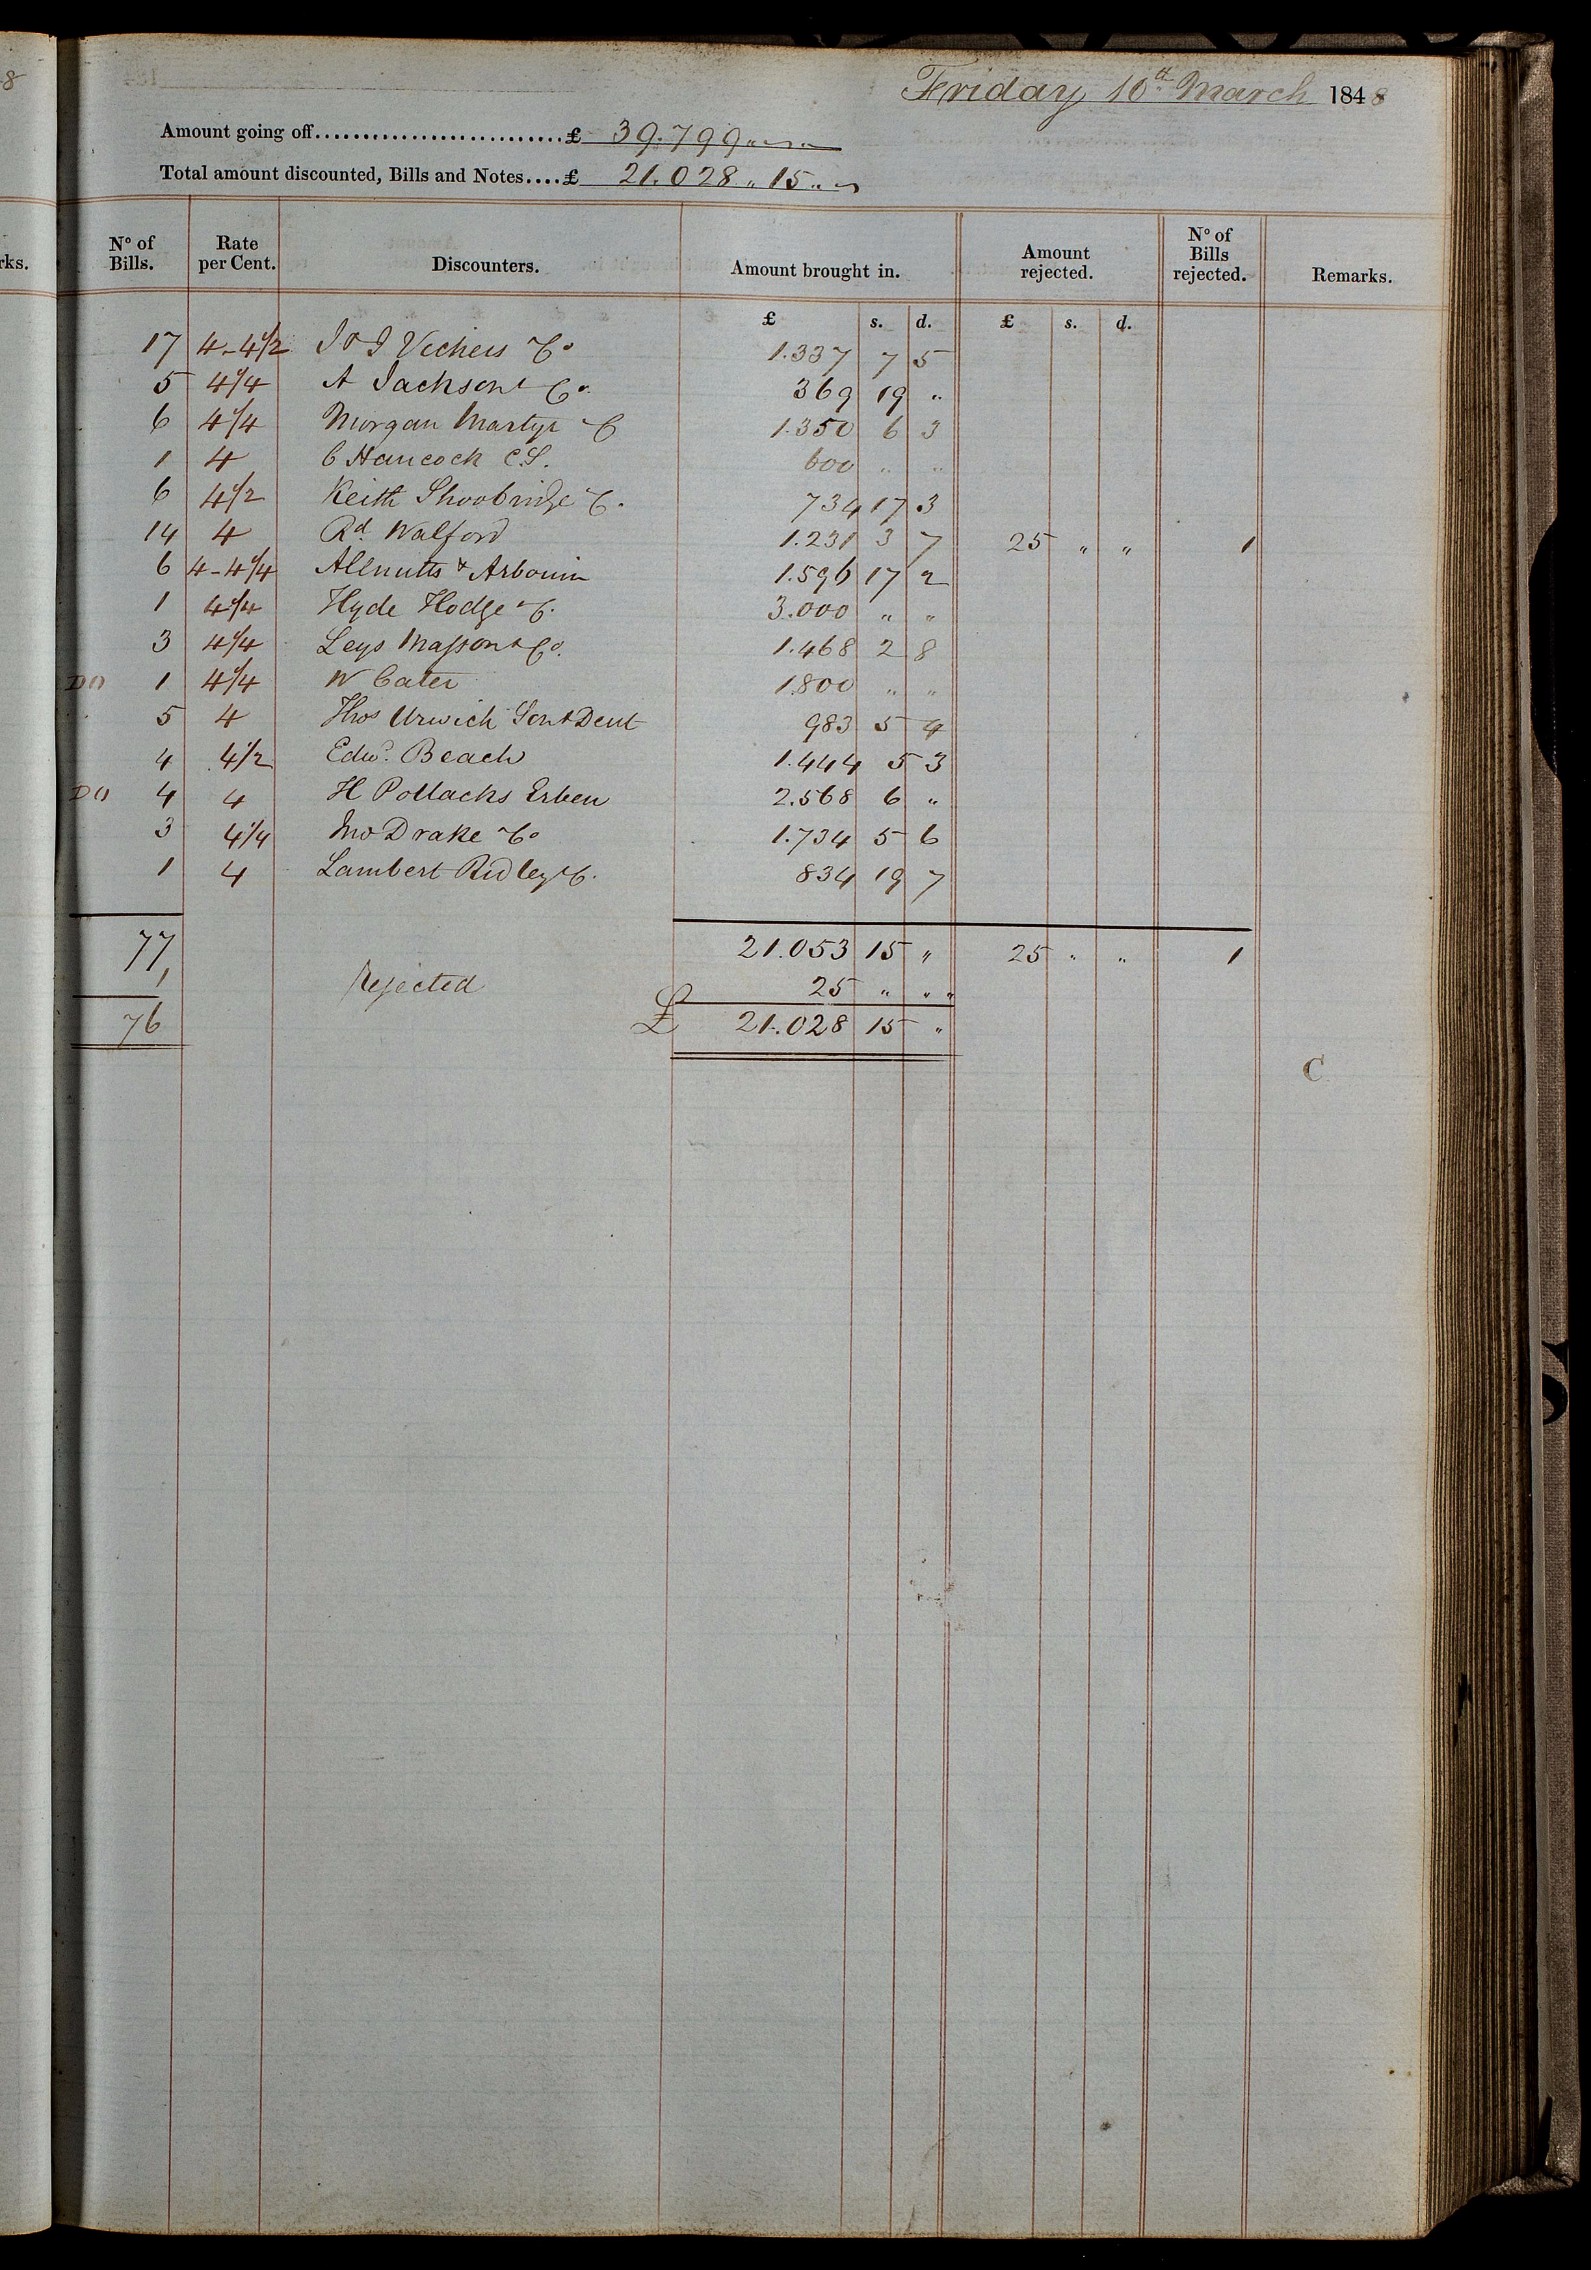 8
Friday 10th March 1848
Amount going off..........................£ 39.799 " " "
Total amount discounted, Bills and Notes....£ 21.028 " 15 " "
rks.
No of Bills. Rate per Cent. Discounters. Amount brought in. Amount rejected. No of Bills rejected. Remarks.
£ s. d. £ s. d.
17 4-4½ J & J Vickers & Co 1.337 7 5
5 4¼ A Jackson & Co. 369 19 "
6 4¼ Morgan Martyr & C 1.350 6 3
1 4 C Hancock C.S. 600 " "
6 4½ Keith Shoobridge & C. 734 17 3
14 4 Rd Walford 1.231 3 7 25 " " 1
6 4-4¼ Allnutts & Arbouin 1.596 17 2
1 4¼ Hyde Hodge & C. 3.000 " "
3 4¼ Leys Masson & Co. 1.468 2 8
DO 1 4¼ W Cater 1.800 " "
5 4 Thos Urwick Son & Dent 983 5 4
4 4½ Edwd. Beach 1.444 5 3
DO 4 4 H Pollacks Erben 2.568 6 "
3 4¼ Jno Drake & Co 1.734 5 6
1 4 Lambert Ridley & C. 834 19 7
77 21.053 15 " 25 " " 1
1 Rejected 25 " "
76 £ 21.028 15 "
C